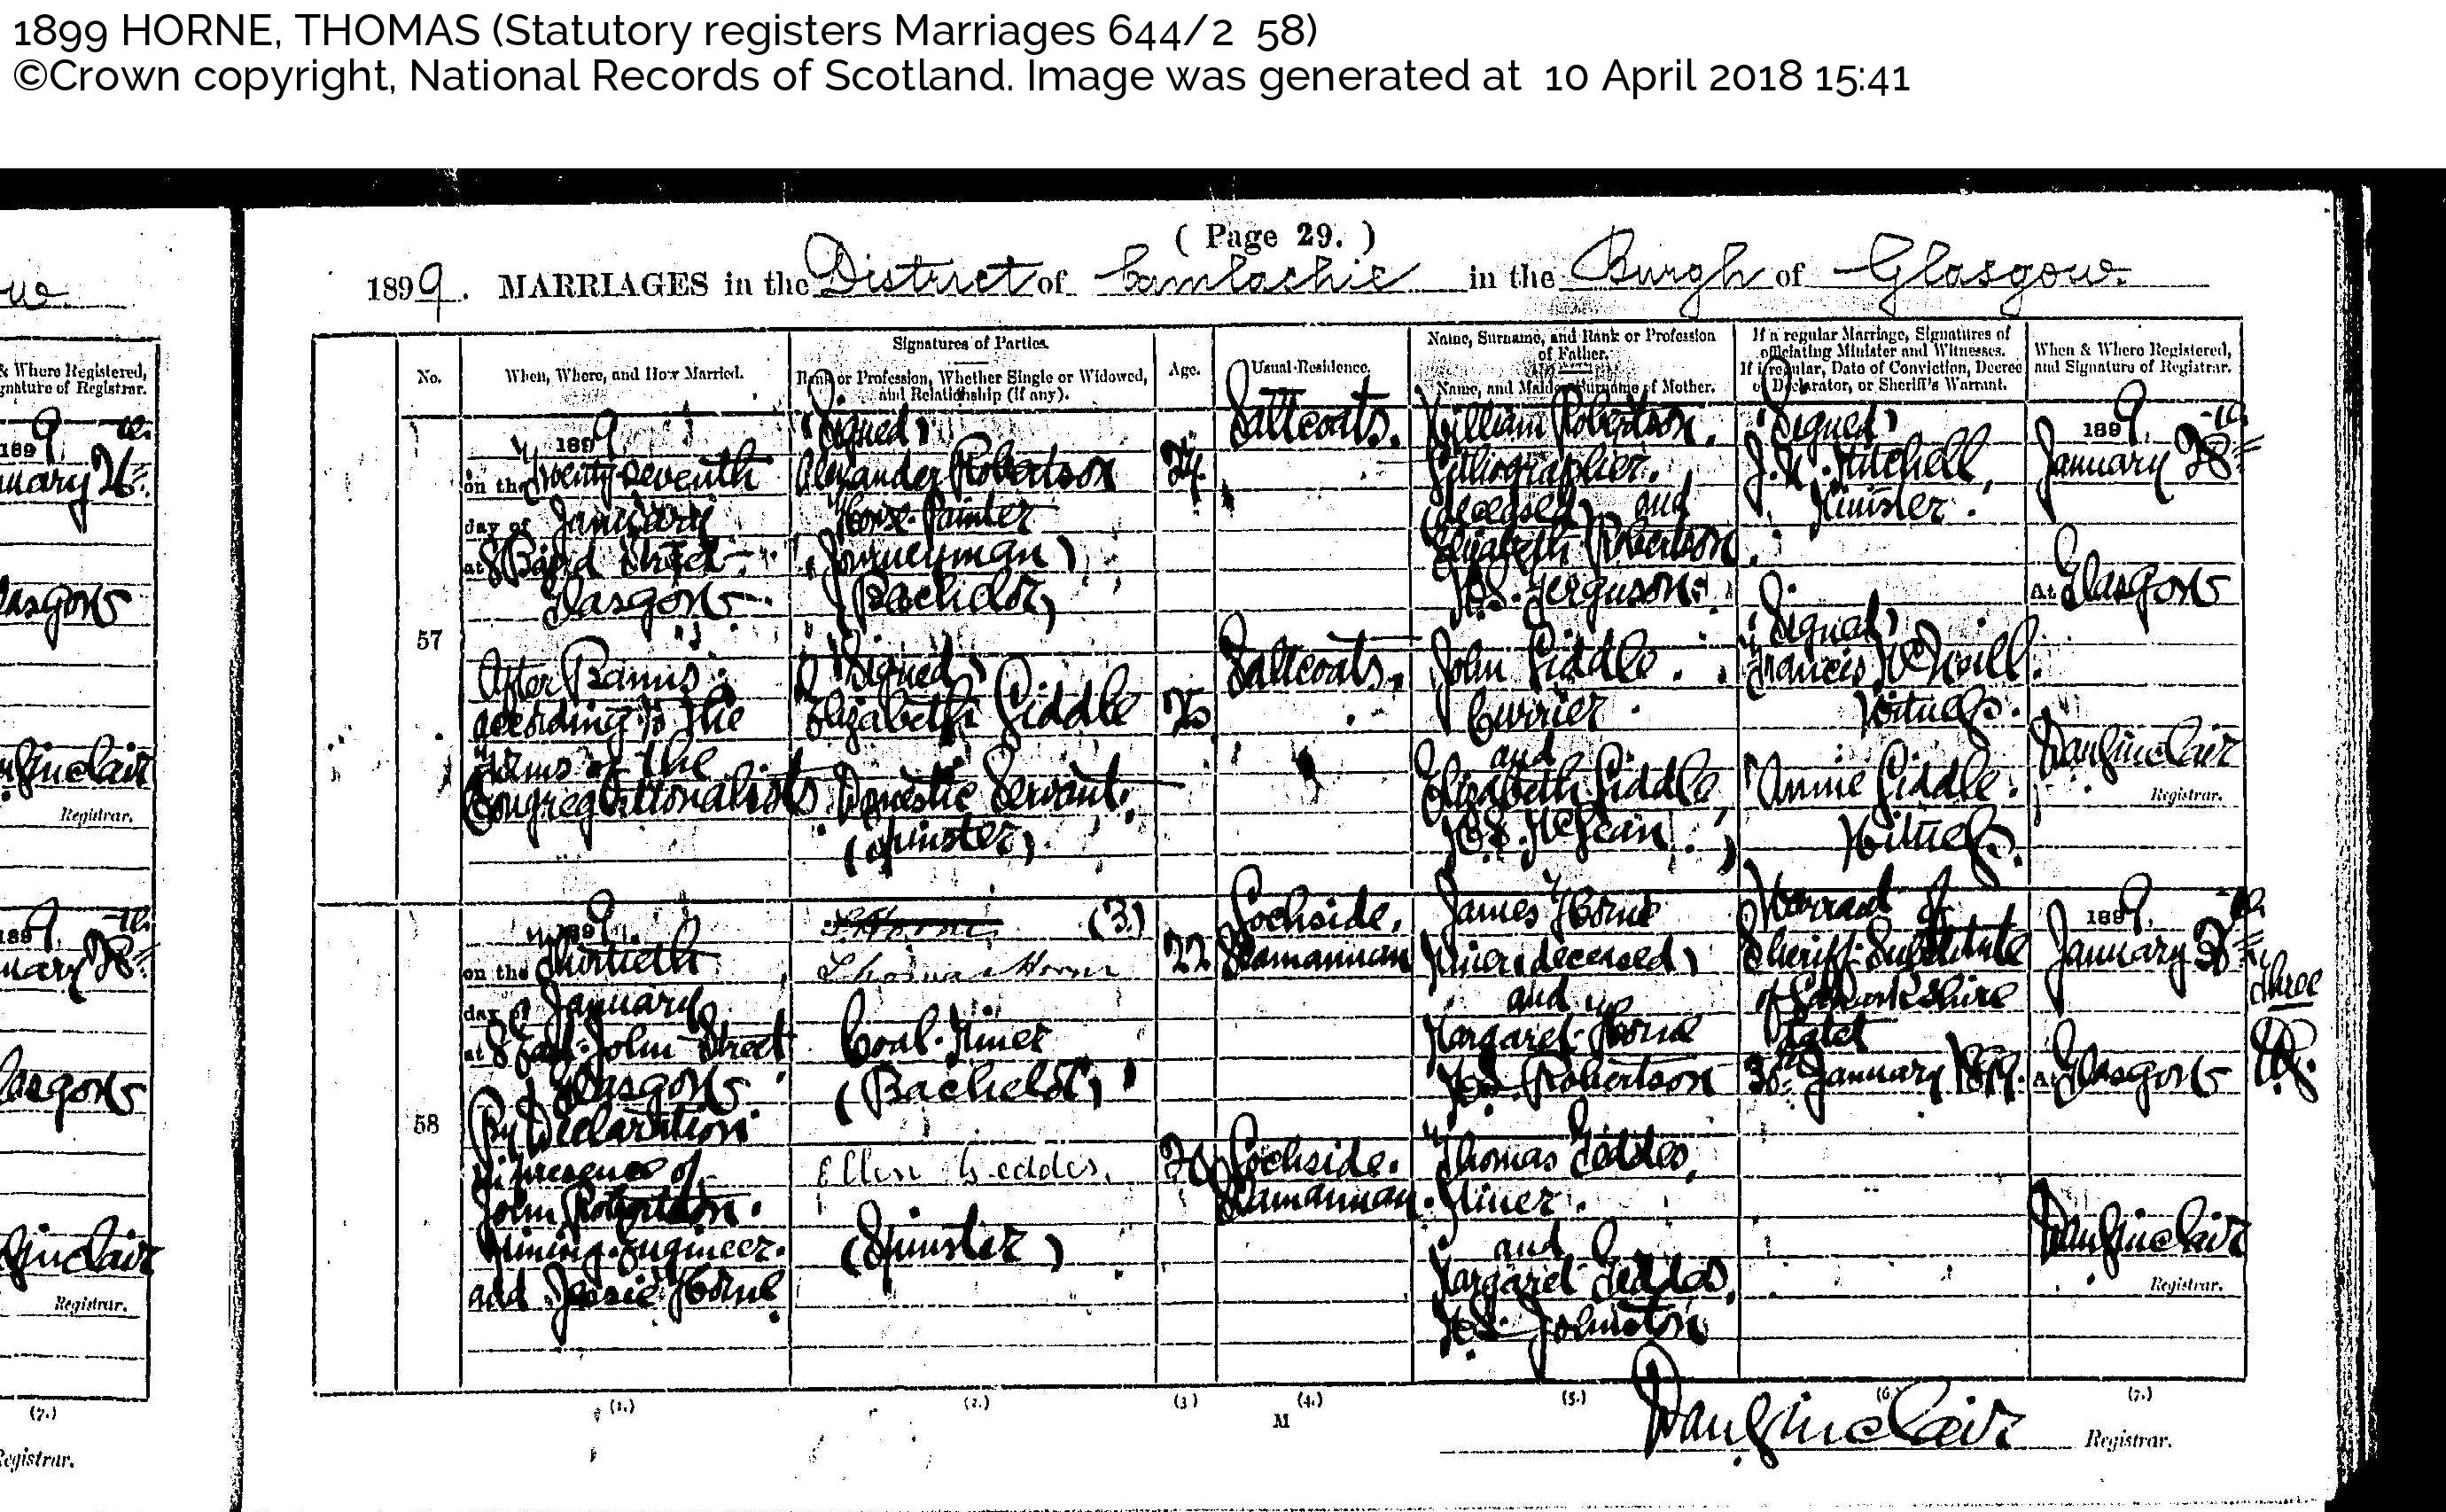 1899 HORNE, THOMAS (Statutory registers Marriages 644/2 58)
©Crown copyright, National Records of Scotland. Image was generated at 10 April 2018 15:41
( Page 29. )
1899. MARRIAGES in the District of Camlachie in the Burgh of Glasgow.
No.
When, Where, and How Married.
Signatures of Parties.
Rank or Profession, Whether Single or Widowed, and Relationship (if any).
Age.
Usual Residence.
Name, Surname, and Rank or Profession of Father.
Name, and Maiden Surname of Mother.
If a regular Marriage, Signatures of officiating Minister and Witnesses.
If irregular, Date of Conviction, Decree of Declarator, or Sheriff's Warrant.
When & Where Registered, and Signature of Registrar.
57
1899,
on the Twenty-seventh
day of January
at 8 Baird Street
Glasgow
After Banns
according to the
Forms of the
Congregationalists
(Signed)
Alexander Robertson
House-Painter
(Journeyman)
(Bachelor)
(Signed)
Elizabeth Liddle
Domestic Servant.
(Spinster)
24
25
Saltcoats.
Saltcoats.
William Robertson,
Lithographer,
(deceased) and
Elizabeth Robertson
M.S. Ferguson.
John Liddle
Currier
and
Elizabeth Liddle,
M.S. McLean
(Signed)
Minister.
(Signed)
Francis McNeill.
Witness.
Annie Liddle.
Witness.
1899,
January 28th
At Glasgow
Registrar.
58
1899.
on the Thirtieth
day of January
at 8 East John Street
Glasgow
By Declaration
in presence of
John Robertson.
Mining-Engineer.
and Jessie Horne
(3)
Thomas Horn
Coal-Miner
(Bachelor)
Ellen Geddes.
(Spinster)
22
20
Lochside,
Slamannan
Lochside.
Slamannan.
James Horne
Miner (deceased)
and
Margaret Horne
M.S. Robertson
Thomas Geddes,
Miner.
and
Margaret Geddes,
M.S. Johnston
Warrant of
Sheriff-Substitute
of Lanarkshire
dated
30th January 1899.
1899,
January
At Glasgow
Registrar.
three
(1.)
(2.)
(3)
(4.)
(5.)
(6.)
(7.)
M
Registrar.